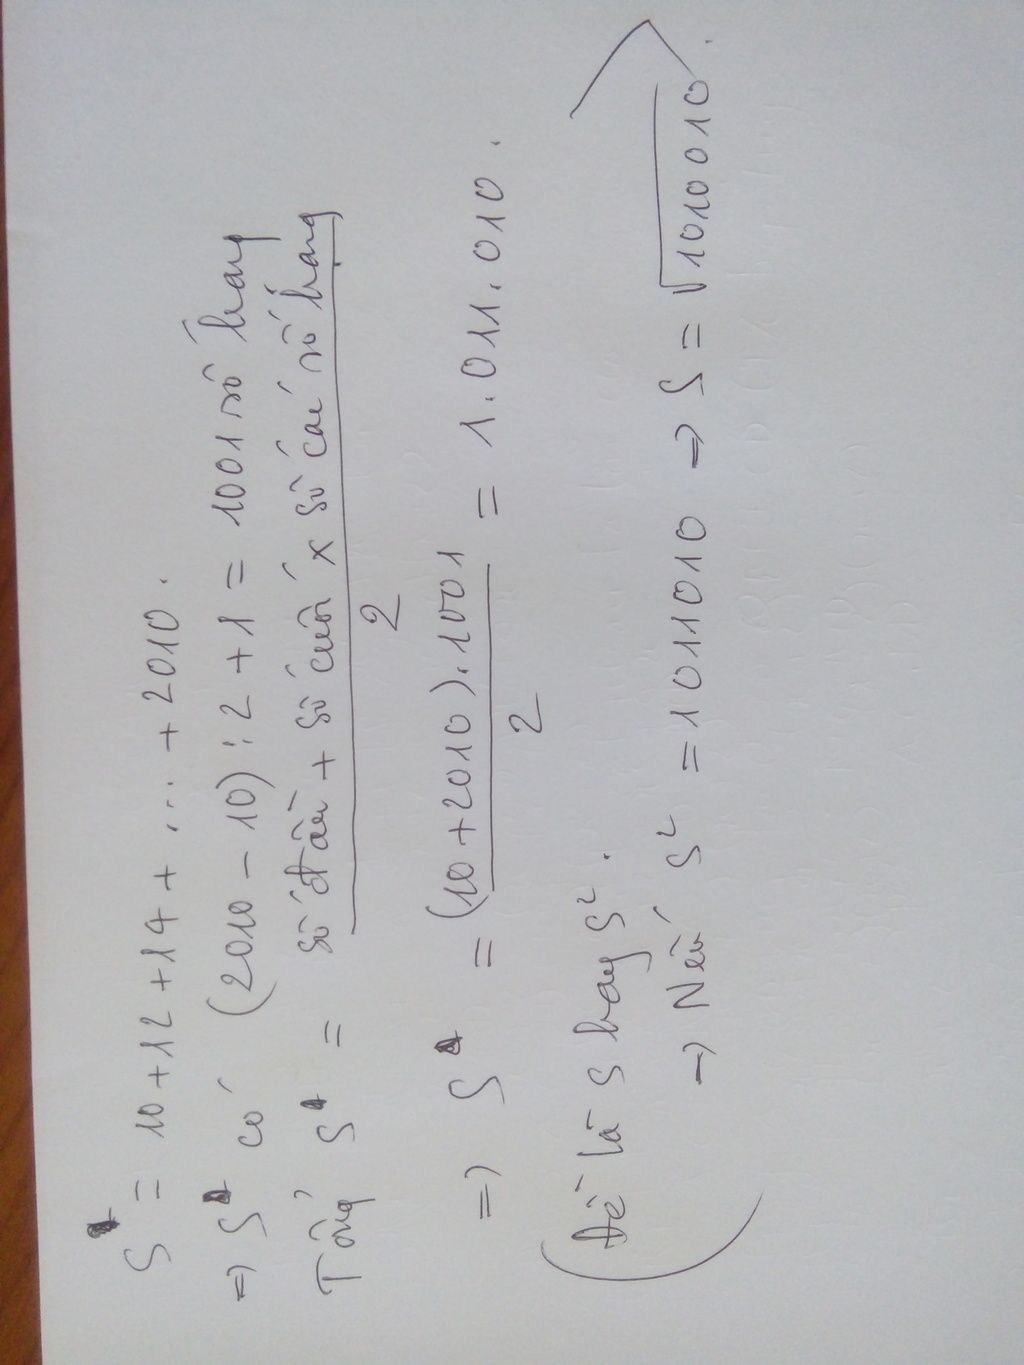 S = 10 + 12 + 14 + ... + 2010.
=> S có (2010 - 10) : 2 + 1 = 1001 số hạng
Tổng S = số đầu + số cuối x số các số hạng
2
=> S = (10 + 2010).1001 = 1.011.010.
2
(Đề là S hay S².
→ Nếu S² = 1011010 => S = √1010010).